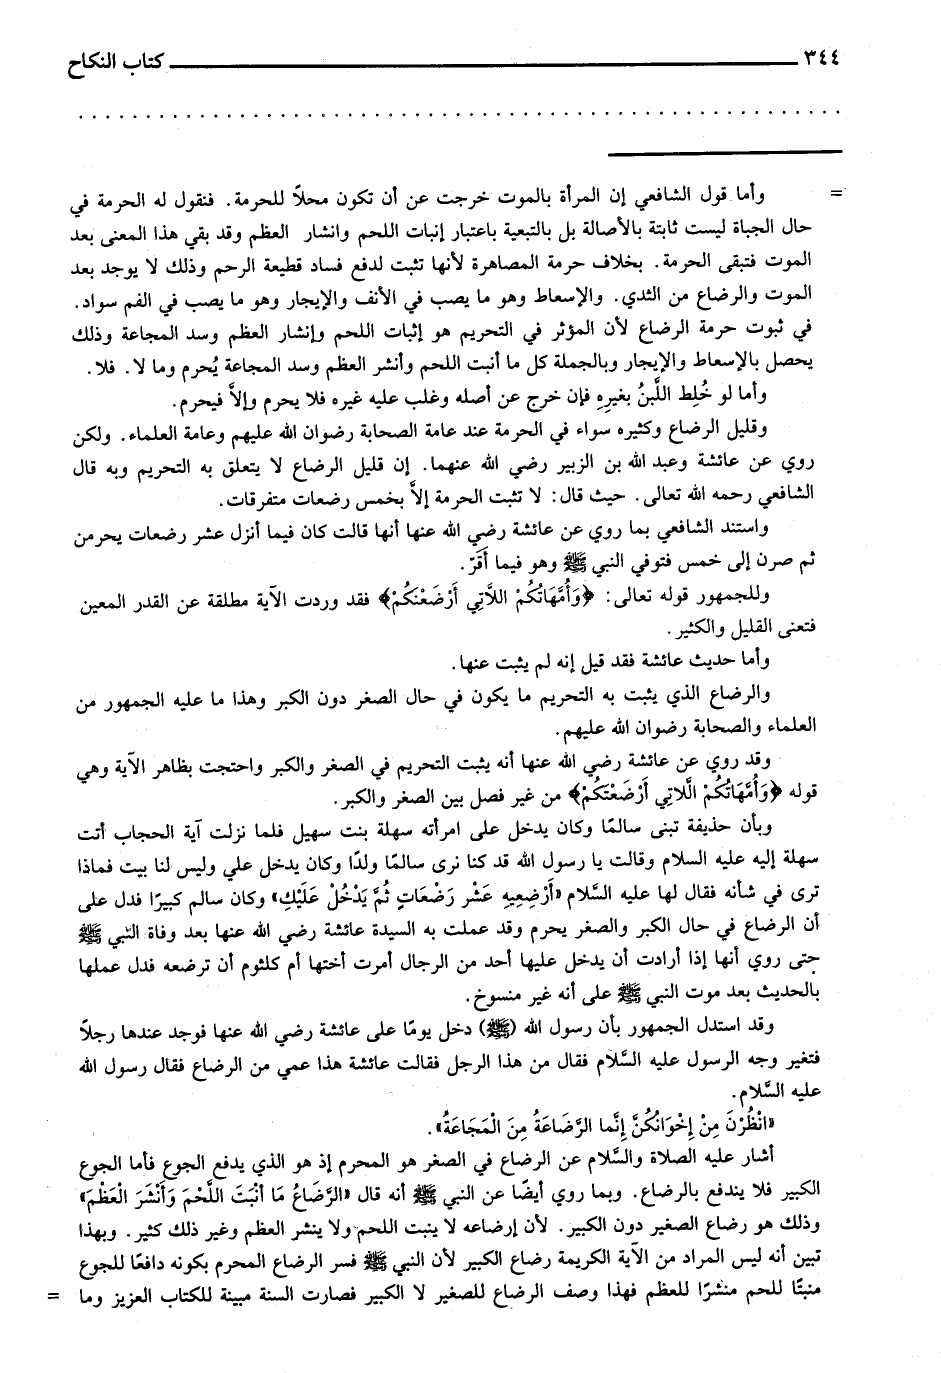 ٣٤٤ كتاب النكاح
= وأما قول الشافعي إن المرأة بالموت خرجت عن أن تكون محلاً للحرمة. فنقول له الحرمة في
حال الجياة ليست ثابتة بالأصالة بل بالتبعية باعتبار إنبات اللحم وانشار العظم وقد بقي هذا المعنى بعد
الموت فتبقى الحرمة. بخلاف حرمة المصاهرة لأنها تثبت لدفع فساد قطيعة الرحم وذلك لا يوجد بعد
الموت والرضاع من الثدي. والإسعاط وهو ما يصب في الأنف والإيجار وهو ما يصب في الفم سواد.
في ثبوت حرمة الرضاع لأن المؤثر في التحريم هو إثبات اللحم وإنشار العظم وسد المجاعة وذلك
يحصل بالإسعاط والإيجار وبالجملة كل ما أنبت اللحم وأنشر العظم وسد المجاعة يُحرم وما لا. فلا.
وأما لو خُلِط اللَّبنُ بغيرِهِ فإن خرج عن أصله وغلب عليه غيره فلا يحرم وإلاَّ فيحرم.
وقليل الرضاع وكثيره سواء في الحرمة عند عامة الصحابة رضوان الله عليهم وعامة العلماء. ولكن
روي عن عائشة وعبد الله بن الزبير رضي الله عنهما. إن قليل الرضاع لا يتعلق به التحريم وبه قال
الشافعي رحمه الله تعالى. حيث قال: لا تثبت الحرمة إلاَّ بخمس رضعات متفرقات.
واستند الشافعي بما روي عن عائشة رضي الله عنها أنها قالت كان فيما أنزل عشر رضعات يحرمن
ثم صرن إلى خمس فتوفي النبي ﷺ وهو فيما أَقَرّ.
وللجمهور قوله تعالى: ﴿وَأُمَّهَاتُكُمْ اللاَّتِي أَرْضَعْنَكُمْ﴾ فقد وردت الآية مطلقة عن القدر المعين
فتعنى القليل والكثير.
وأما حديث عائشة فقد قيل إنه لم يثبت عنها.
والرضاع الذي يثبت به التحريم ما يكون في حال الصغر دون الكبر وهذا ما عليه الجمهور من
العلماء والصحابة رضوان الله عليهم.
وقد روي عن عائشة رضي الله عنها أنه يثبت التحريم في الصغر والكبر واحتجت بظاهر الآية وهي
قوله ﴿وَأُمَّهَاتُكُمْ الَّلاتِي أَرْضَعْتَكُمْ﴾ من غير فصل بين الصغر والكبر.
وبأن حذيفة تبنى سالمًا وكان يدخل على امرأته سهلة بنت سهيل فلما نزلت آية الحجاب أتت
سهلة إليه عليه السلام وقالت يا رسول الله قد كنا نرى سالمًا ولدًا وكان يدخل علي وليس لنا بيت فماذا
ترى في شأنه فقال لها عليه السَّلام «أَرْضِعِيهِ عَشْر رَضْعَاتٍ ثُمَّ يَدْخُلْ عَلَيْكِ» وكان سالم كبيرًا فدل على
أن الرضاع في حال الكبر والصغر يحرم وقد عملت به السيدة عائشة رضي الله عنها بعد وفاة النبي ﷺ
حتى روي أنها إذا أرادت أن يدخل عليها أحد من الرجال أمرت أختها أم كلثوم أن ترضعه فدل عملها
بالحديث بعد موت النبي ﷺ على أنه غير منسوخ.
وقد استدل الجمهور بأن رسول الله (ﷺ) دخل يومًا على عائشة رضي الله عنها فوجد عندها رجلاً
فتغير وجه الرسول عليه السَّلام فقال من هذا الرجل فقالت عائشة هذا عمي من الرضاع فقال رسول الله
عليه السَّلام.
«انْظُرْنَ مِنْ إِخْوَانُكُنَّ إِنَّما الرَّضَاعَةُ مِنَ الْمَجَاعَةُ».
أشار عليه الصلاة والسَّلام عن الرضاع في الصغر هو المحرم إذ هو الذي يدفع الجوع فأما الجوع
الكبير فلا يندفع بالرضاع. وبما روي أيضًا عن النبي ﷺ أنه قال «الرَّضَاعُ مَا أنْبَتَ اللَّحْمَ وَأَنْشَرَ الْعَظْمَ»
وذلك هو رضاع الصغير دون الكبير. لأن إرضاعه لا ينبت اللحم ولا ينشر العظم وغير ذلك كثير. وبهذا
تبين أنه ليس المراد من الآية الكريمة رضاع الكبير لأن النبي ﷺ فسر الرضاع المحرم بكونه دافعًا للجوع
منبتًا للحم منشرًا للعظم فهذا وصف الرضاع للصغير لا الكبير فصارت السنة مبينة للكتاب العزيز وما =